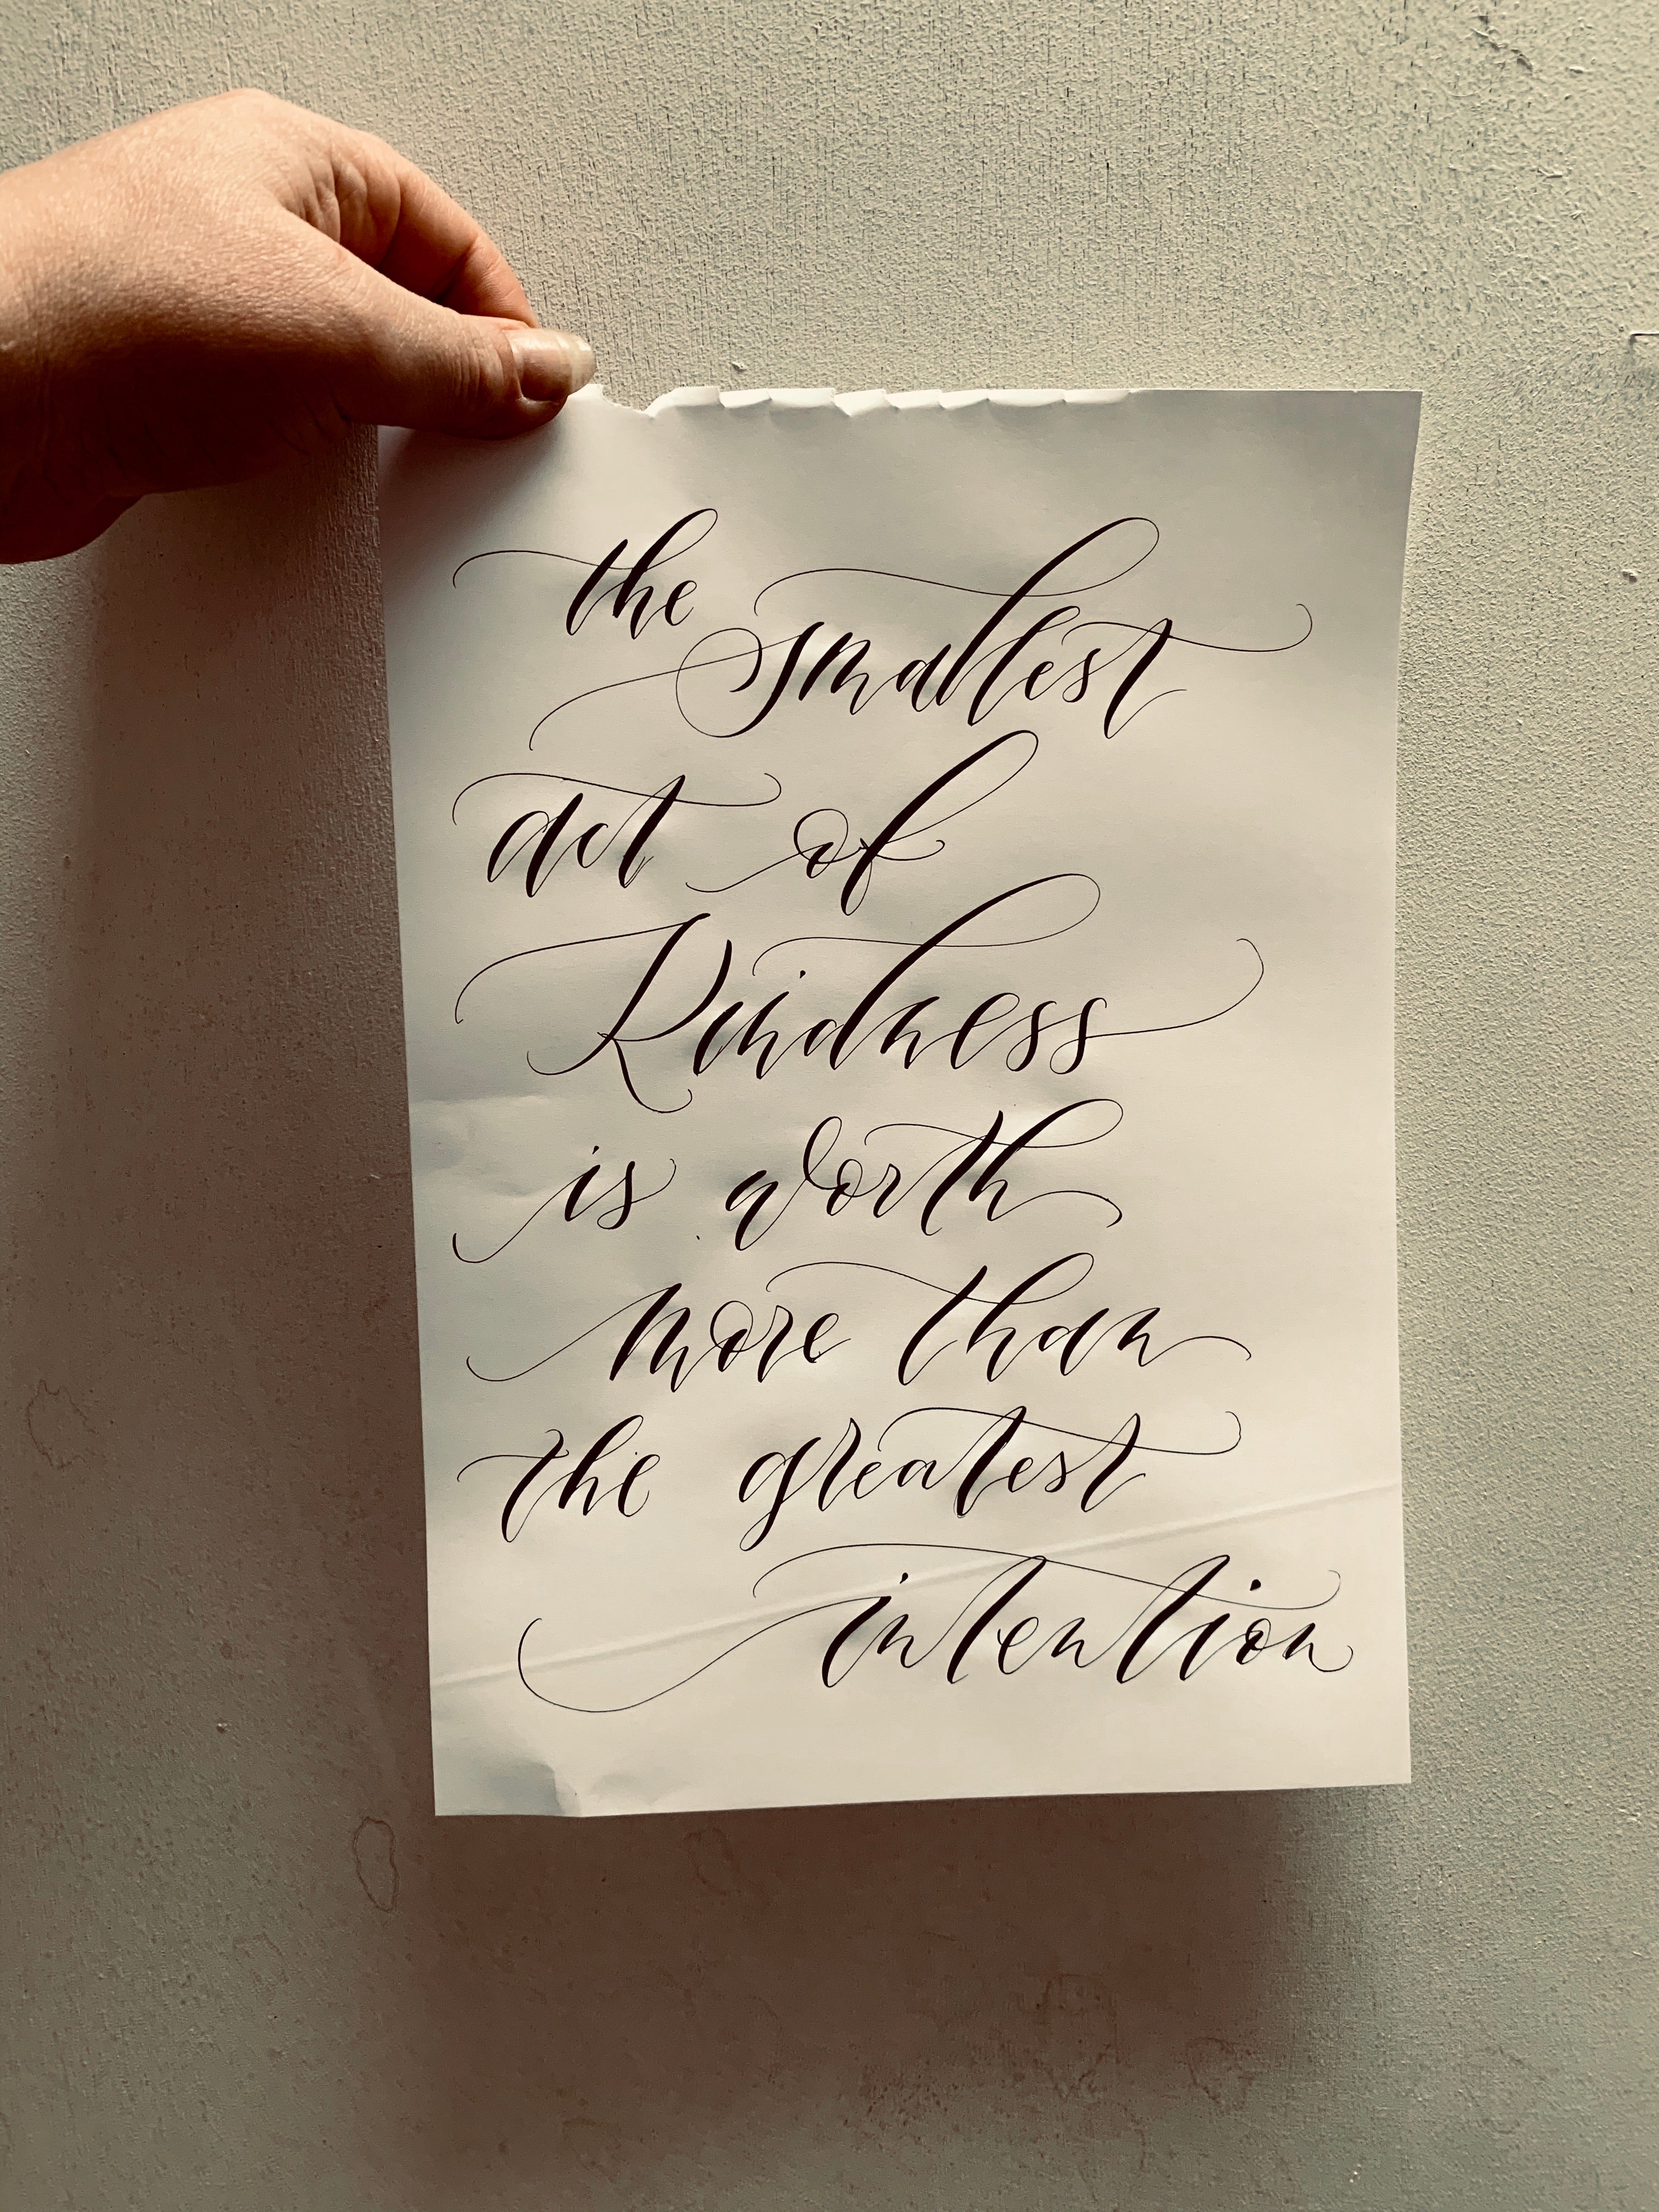 the smallest
act of
Kindness
is worth
more than
the greatest
intention